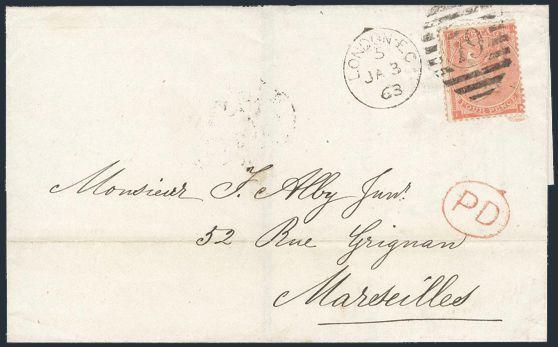 LONDON·E.C
5
JA 3
63
79
FOUR PENCE
Monsieur F. Alby Junr.
52 Rue Grignan
PD
Marseilles